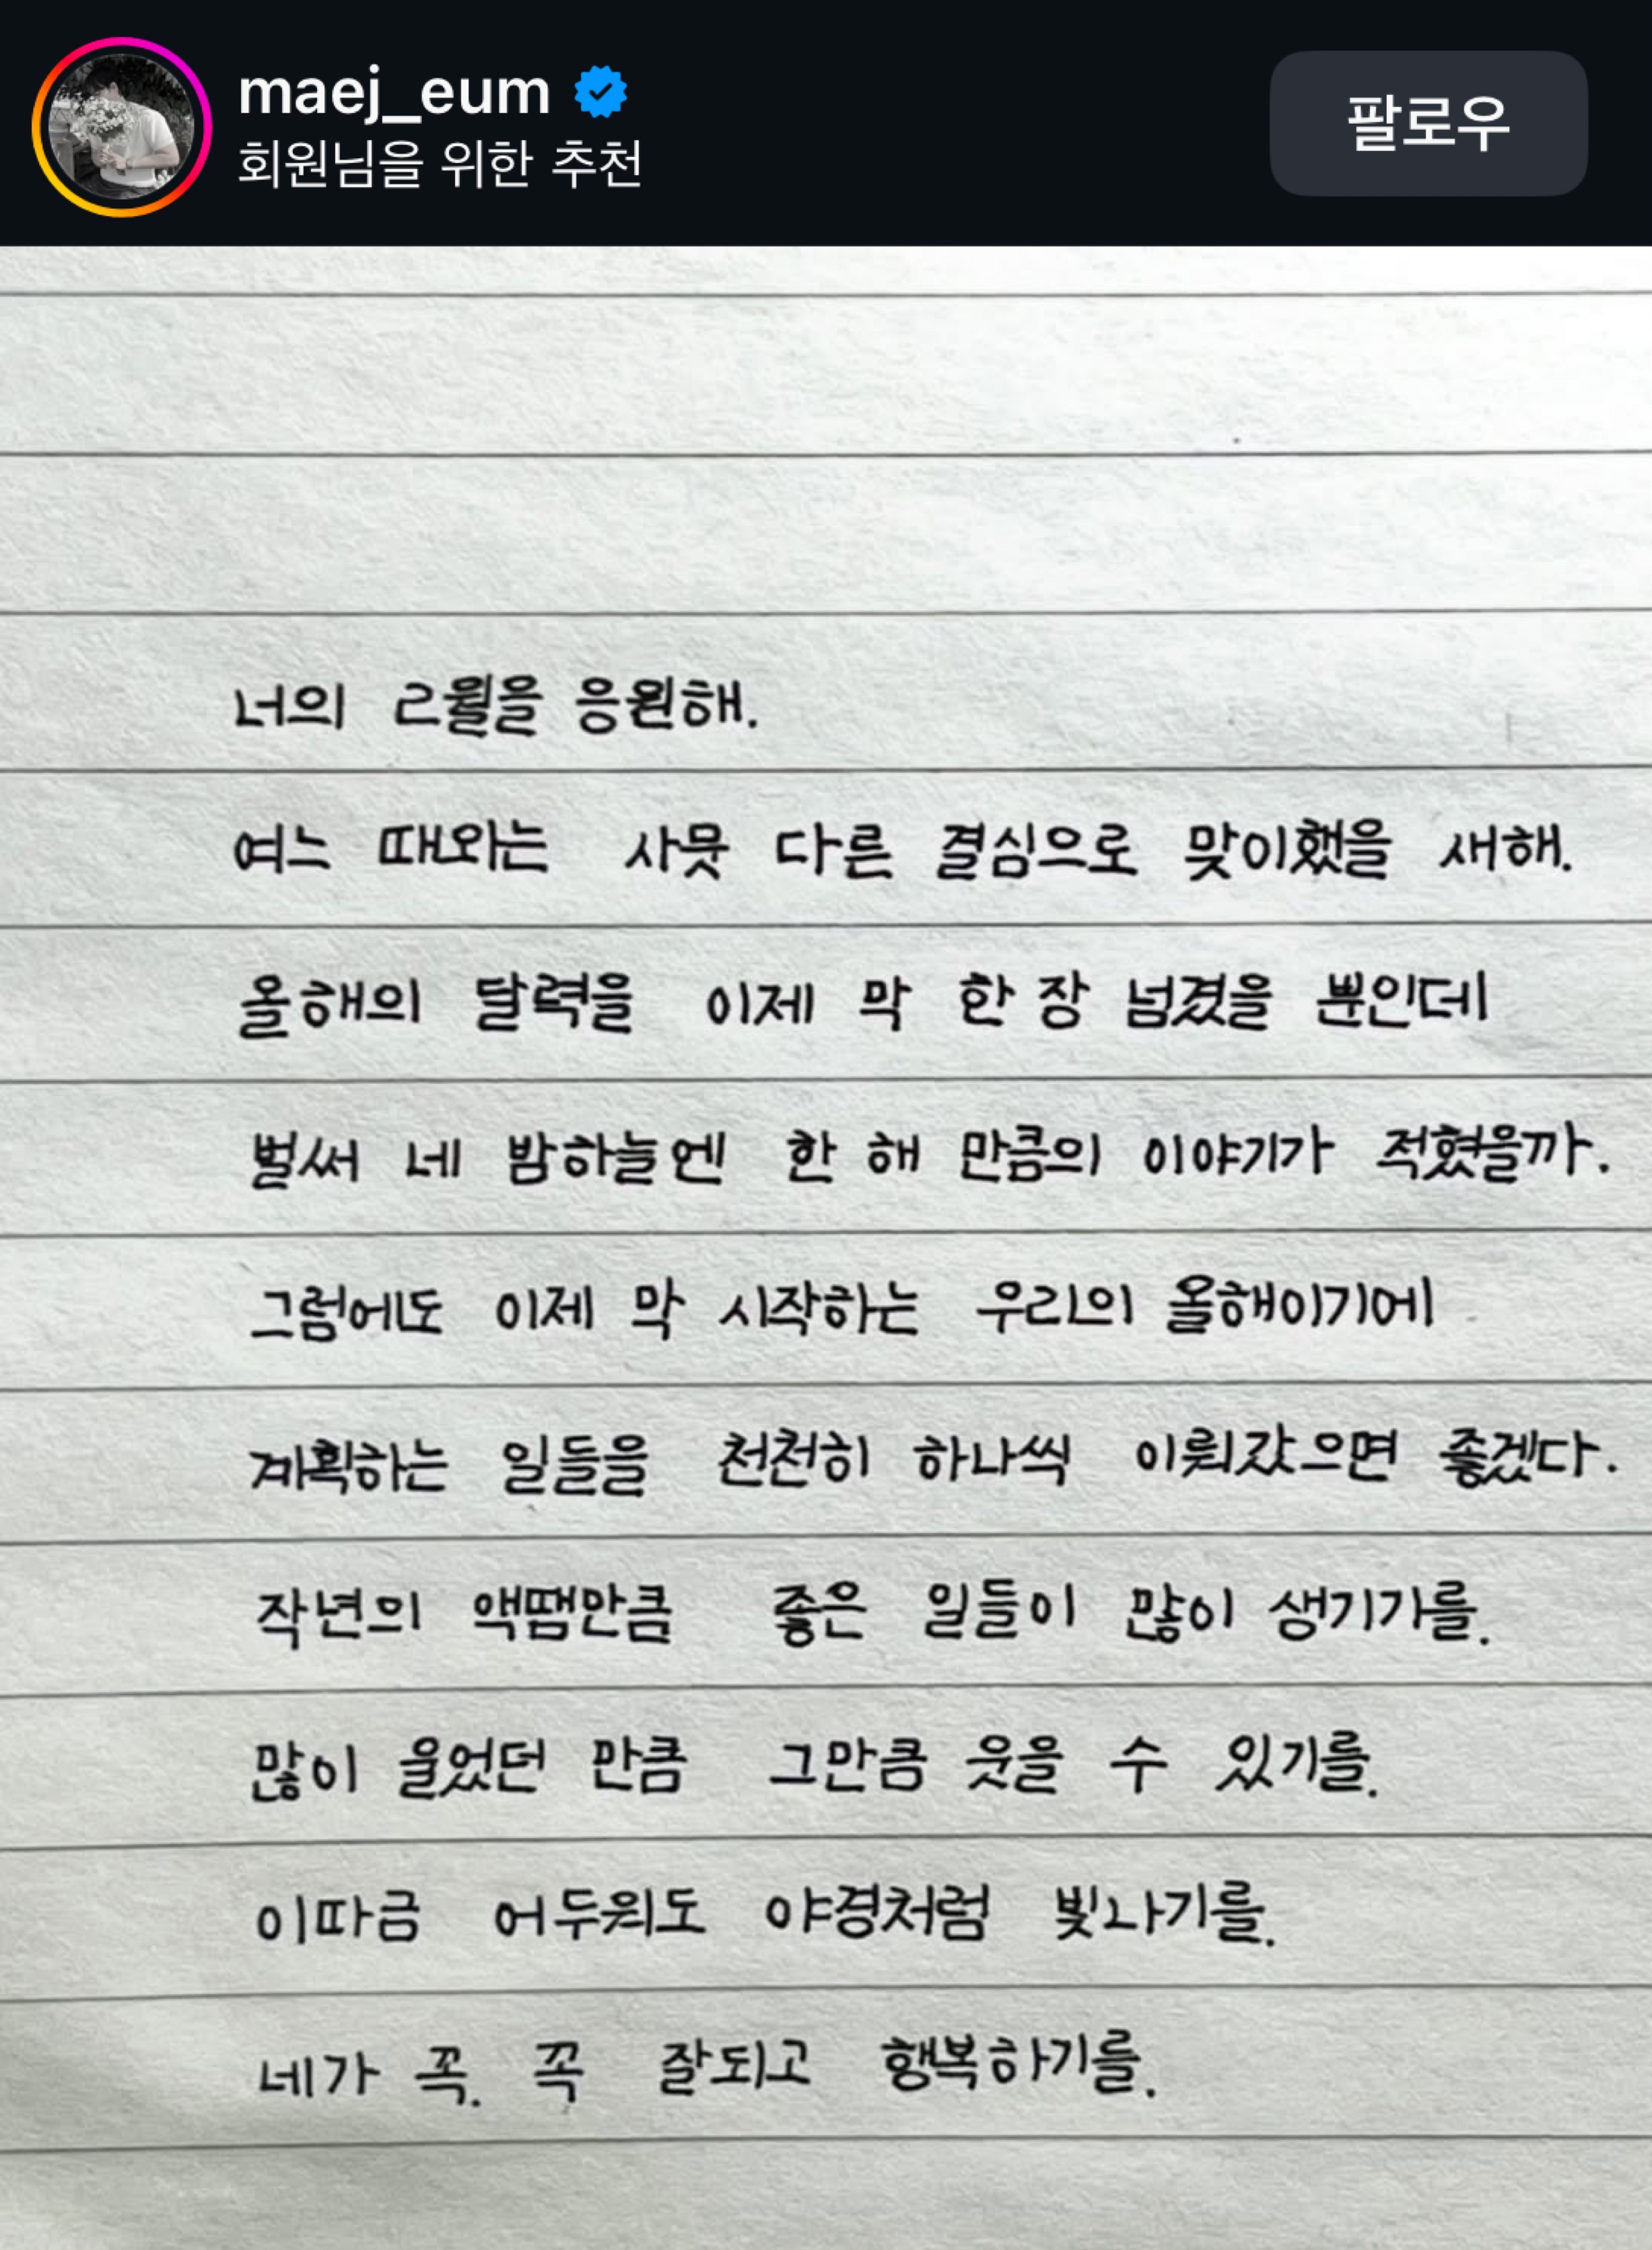 maej_eum
회원님을 위한 추천
팔로우
너의 2월을 응원해.
여느 때와는 사뭇 다른 결심으로 맞이했을 새해.
올해의 달력을 이제 막 한 장 넘겼을 뿐인데
벌써 네 밤하늘엔 한 해 만큼의 이야기가 적혔을까.
그럼에도 이제 막 시작하는 우리의 올해이기에
계획하는 일들을 천천히 하나씩 이뤄갔으면 좋겠다.
작년의 액땜만큼 좋은 일들이 많이 생기기를.
많이 울었던 만큼 그만큼 웃을 수 있기를.
이따금 어두워도 야경처럼 빛나기를.
네가 꼭. 꼭 잘되고 행복하기를.